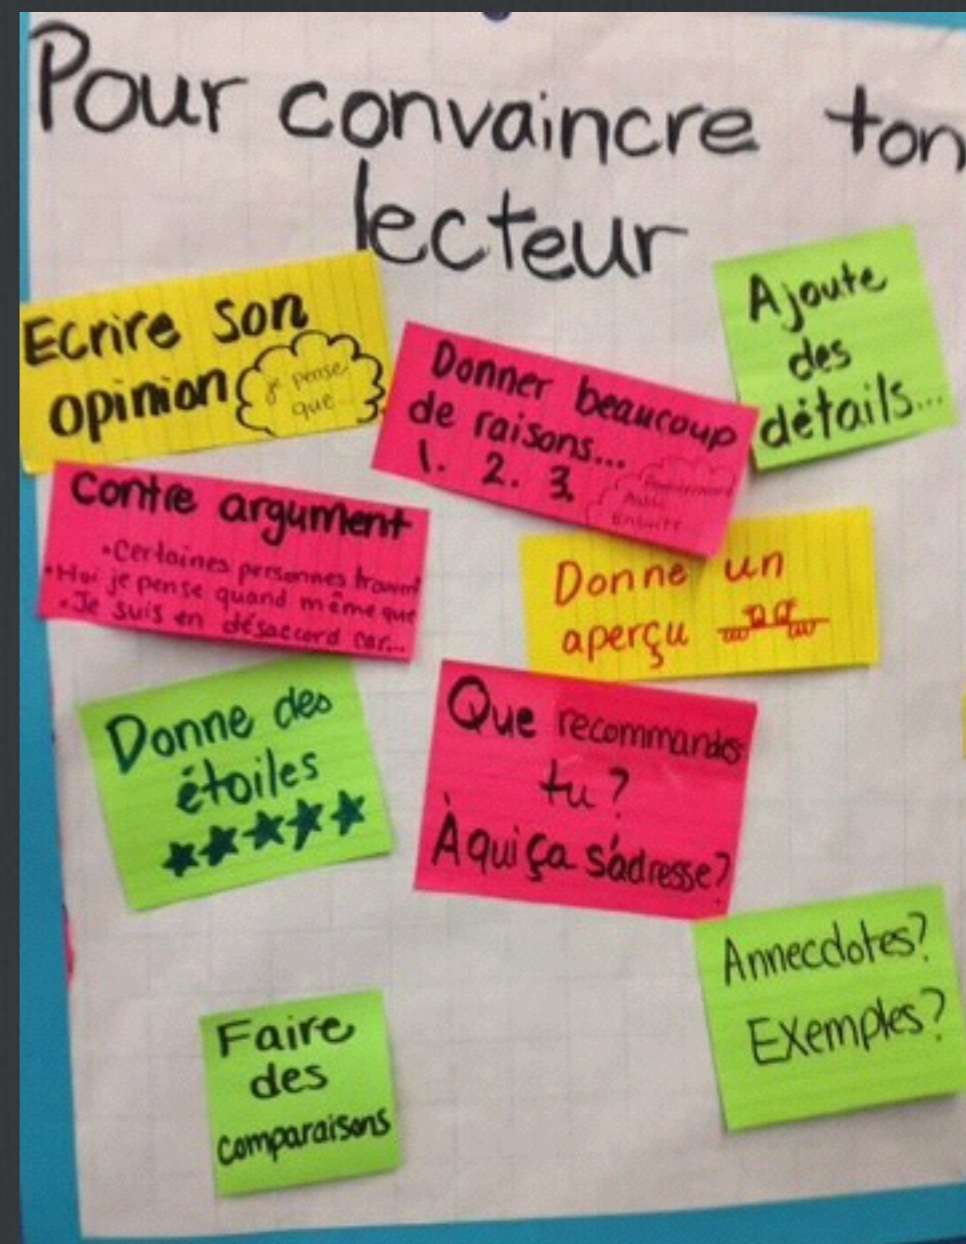 Pour convaincre ton
lecteur
Ecrire son
opinion
je pense
que...
Donner beaucoup
de raisons...
1. 2. 3.
Aussi
Ensuite
Ajoute
des
détails...
Contre argument
• Certaines personnes trouvent
• Moi je pense quand même que
• Je suis en désaccord car...
Donne un
aperçu
Donne des
étoiles
Que recommandes
tu?
À qui ça s'adresse?
Annecdotes?
Exemples?
Faire
des
comparaisons